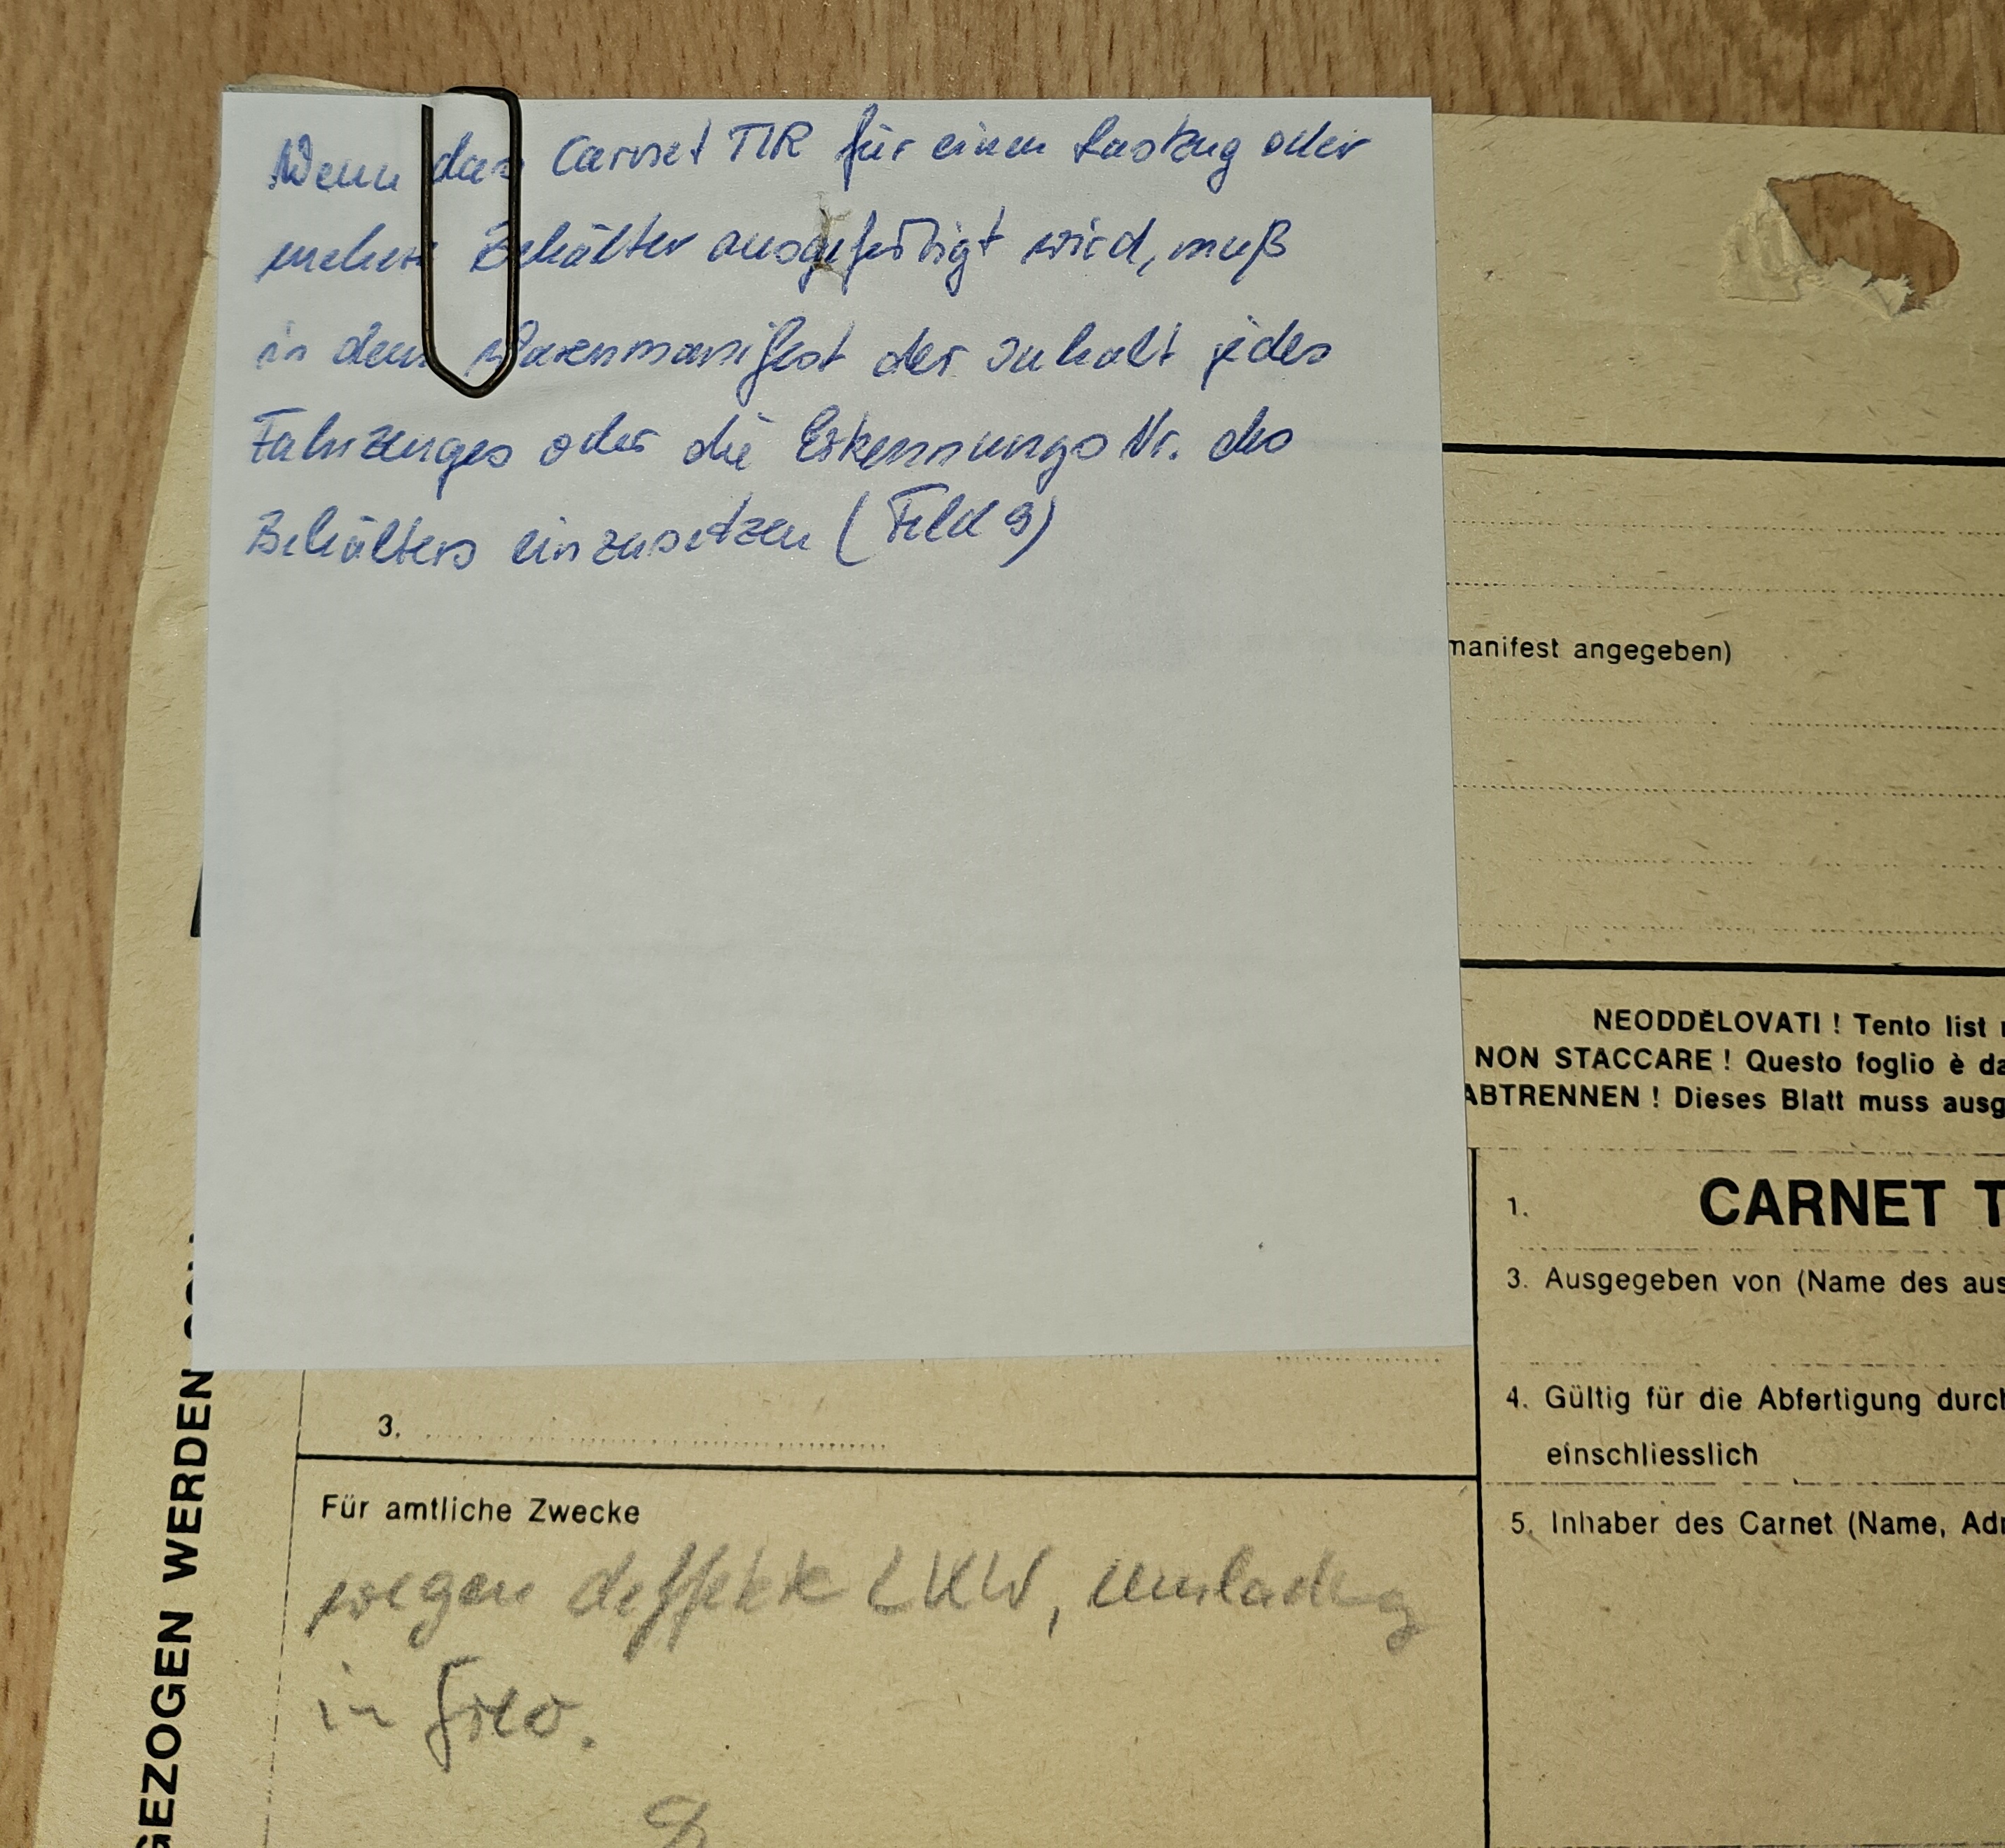 Wenn das Carnet TIR für einen Lastzug oder
mehere Behälter ausgefertigt wird, muß
in dem Warenmanifest der Inhalt jedes
Fahrzeuges oder die Erkennungs Nr. des
Behälters einzusetzen (Feld 9)
manifest angegeben)
NEODDĚLOVATI ! Tento list
NON STACCARE ! Questo foglio è da
ABTRENNEN ! Dieses Blatt muss ausg
1. CARNET T
3. Ausgegeben von (Name des aus
4. Gültig für die Abfertigung durch
einschliesslich
5. Inhaber des Carnet (Name, Adr
3.
Für amtliche Zwecke
wegen deffekte LKW, Umladung
in
GEZOGEN WERDEN